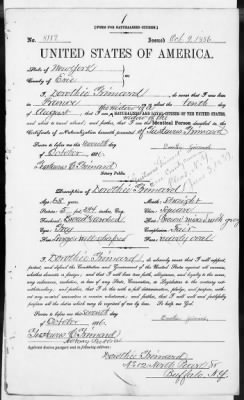 [FORM FOR NATURALIZED CITIZEN.]
No. 8187 Issued Oct 9 1886
UNITED STATES OF AMERICA.
State of New York
County of Erie
I, Dorothie Grimard, do swear that I was born
in France on or about the tenth
day of August, that I am a NATURALIZED AND LOYAL CITIZEN OF THE UNITED STATES,
and about to travel abroad; and further, that I am the Identical Person described in the
Certificate of Naturalization herewith presented.
Sworn to before me this seventh
day of October 1886.
Notary Public.
Description of Dorothie Grimard
Age: 68 years Mouth: Straight
Stature: 5 feet inches, Eng. Chin: Square
Forehead: Broad Hair: Brown mixed with grey
Eyes: Grey Complexion: Fair
Nose: Large well shaped Face: nearly oval
I, Dorothie Grimard, do solemnly swear that I will support,
protect, and defend the Constitution and Government of the United States against all enemies,
whether domestic or foreign; and that I will bear true faith, allegiance, and loyalty to the same,
any ordinance, resolution, or law of any State, Convention, or Legislature to the contrary not-
withstanding; and further, that I do this with a full determination, pledge, and purpose, without
any mental reservation or evasion whatsoever; and further, that I will well and faithfully
perform all the duties which may be required of me by law: So help me God.
Sworn to before me this seventh
day of October 1886.
Notary Public
Applicant desires passport sent to following address:
Dorothie Grimard
No 202 North Pearl St
Buffalo N.Y.